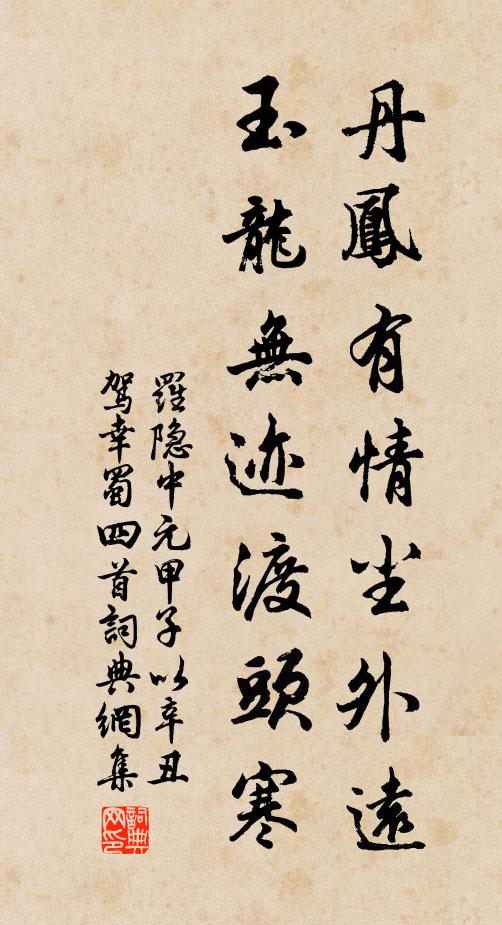 丹鳳有情尘外遠
玉龍無迹渡頭寒
羅隐中元甲子以辛丑
驾幸蜀四首詞典網集
詞典
网印